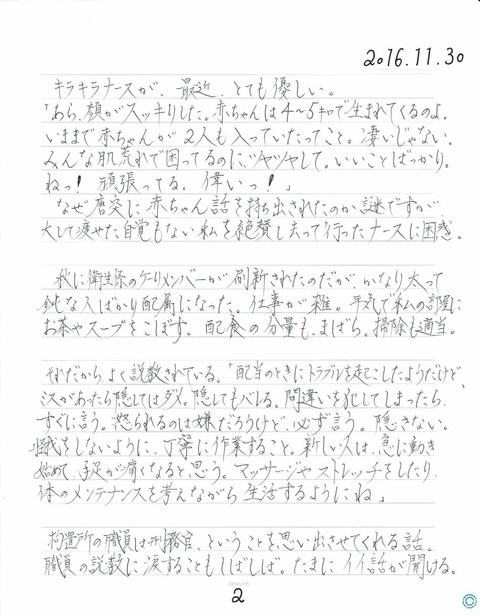 2016.11.30
キラキラナースが、最近、とても優しい。
「あら、顔がスッキリした。赤ちゃんは4〜5キロで生まれてくるのよ。
いままで赤ちゃんが2人も入っていたってこと。凄いじゃない。
みんな肌荒れで困ってるのに、ツヤツヤして。いいことばっかり。
ねっ！頑張ってる。偉いっ！」
なぜ唐突に赤ちゃん話を持ち出されたのか謎ですが、
大して痩せた自覚もない私を絶賛し去って行ったナースに困惑。
秋に衛生係のメンバーが刷新されたのだが、かなり太って
鈍な人ばかり配属になった。仕事が雑。平気で私の部屋に
お茶やスープをこぼす。配食の分量も、まばら。掃除も適当。
それだから、よく説教されている。「配当のときにトラブルを起こしたようだけど、
ミスがあったら隠してはダメ。隠してもバレる。間違いを犯してしまったら、
すぐに言う。怒られるのは嫌だろうけど、必ず言う。隠さない。
怪我をしないように、丁寧に作業すること。新しい人は、急に動き
始めて、手足が痛くなると思う。マッサージやストレッチをしたり、
体のメンテナンスを考えながら生活するようにね」
拘置所の職員は刑務官、ということを思い出させてくれる話。
職員の説教に涙することもしばしば。たまにイイ話が聞ける。
2